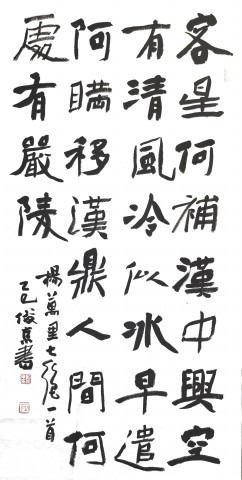 客星何補漢中興空
有清風冷似冰早遣
阿瞞移漢鼎人間何
處有嚴陵
楊萬里七絕一首
乙巳俊京書